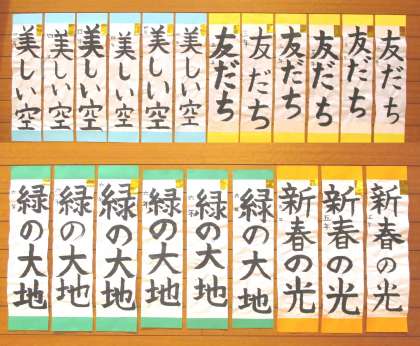 美しい空
美しい空
美しい空
美しい空
美しい空
美しい空
友だち
友だち
友だち
友だち
友だち
友だち
緑の大地
緑の大地
緑の大地
緑の大地
緑の大地
緑の大地
新春の光
新春の光
新春の光